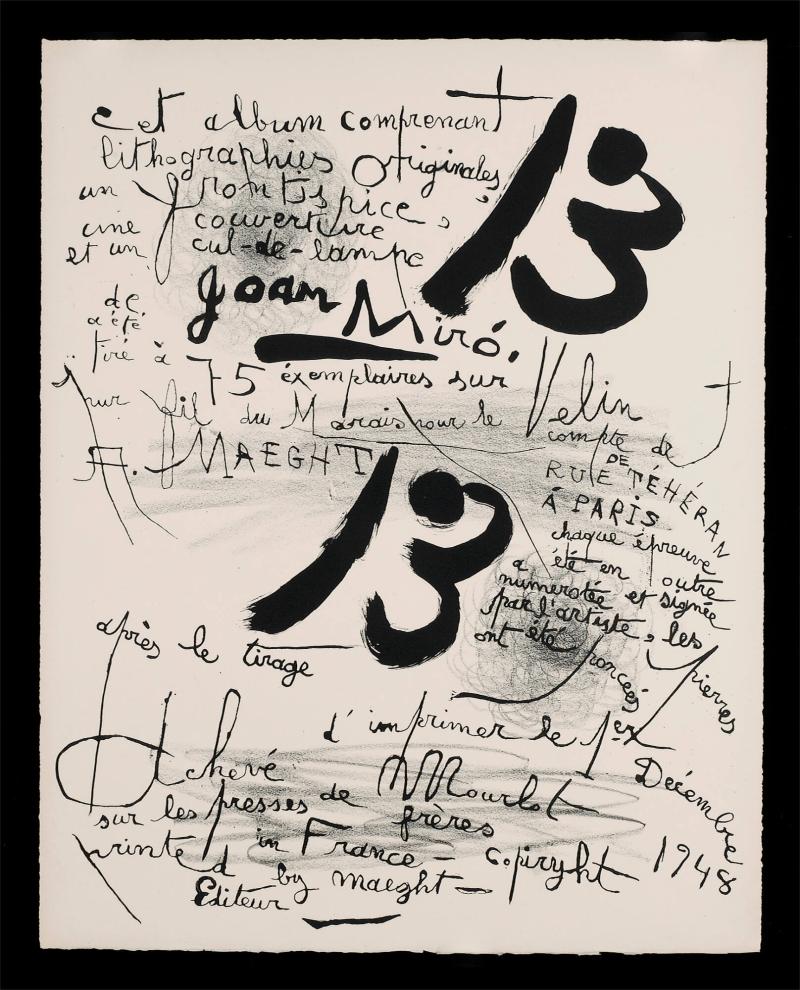 cet album comprenant 13
lithographies originales,
un frontispice,
une couverture
et un cul-de-lampe
de Joan Miró.
a été
tiré à 75 éxemplaires sur Velin
pur fil du Marais pour le compte de
A. MAEGHT
13 RUE DE TÉHÉRAN
À PARIS
chaque épreuve
a été en outre
numérotée et signée
par l'artiste, les pierres
ont été poncées
après le tirage
Achevé d'imprimer le 1er Décembre 1948
sur les presses de Mourlot
frères
printed in France - copiryht
by maeght -
Editeur